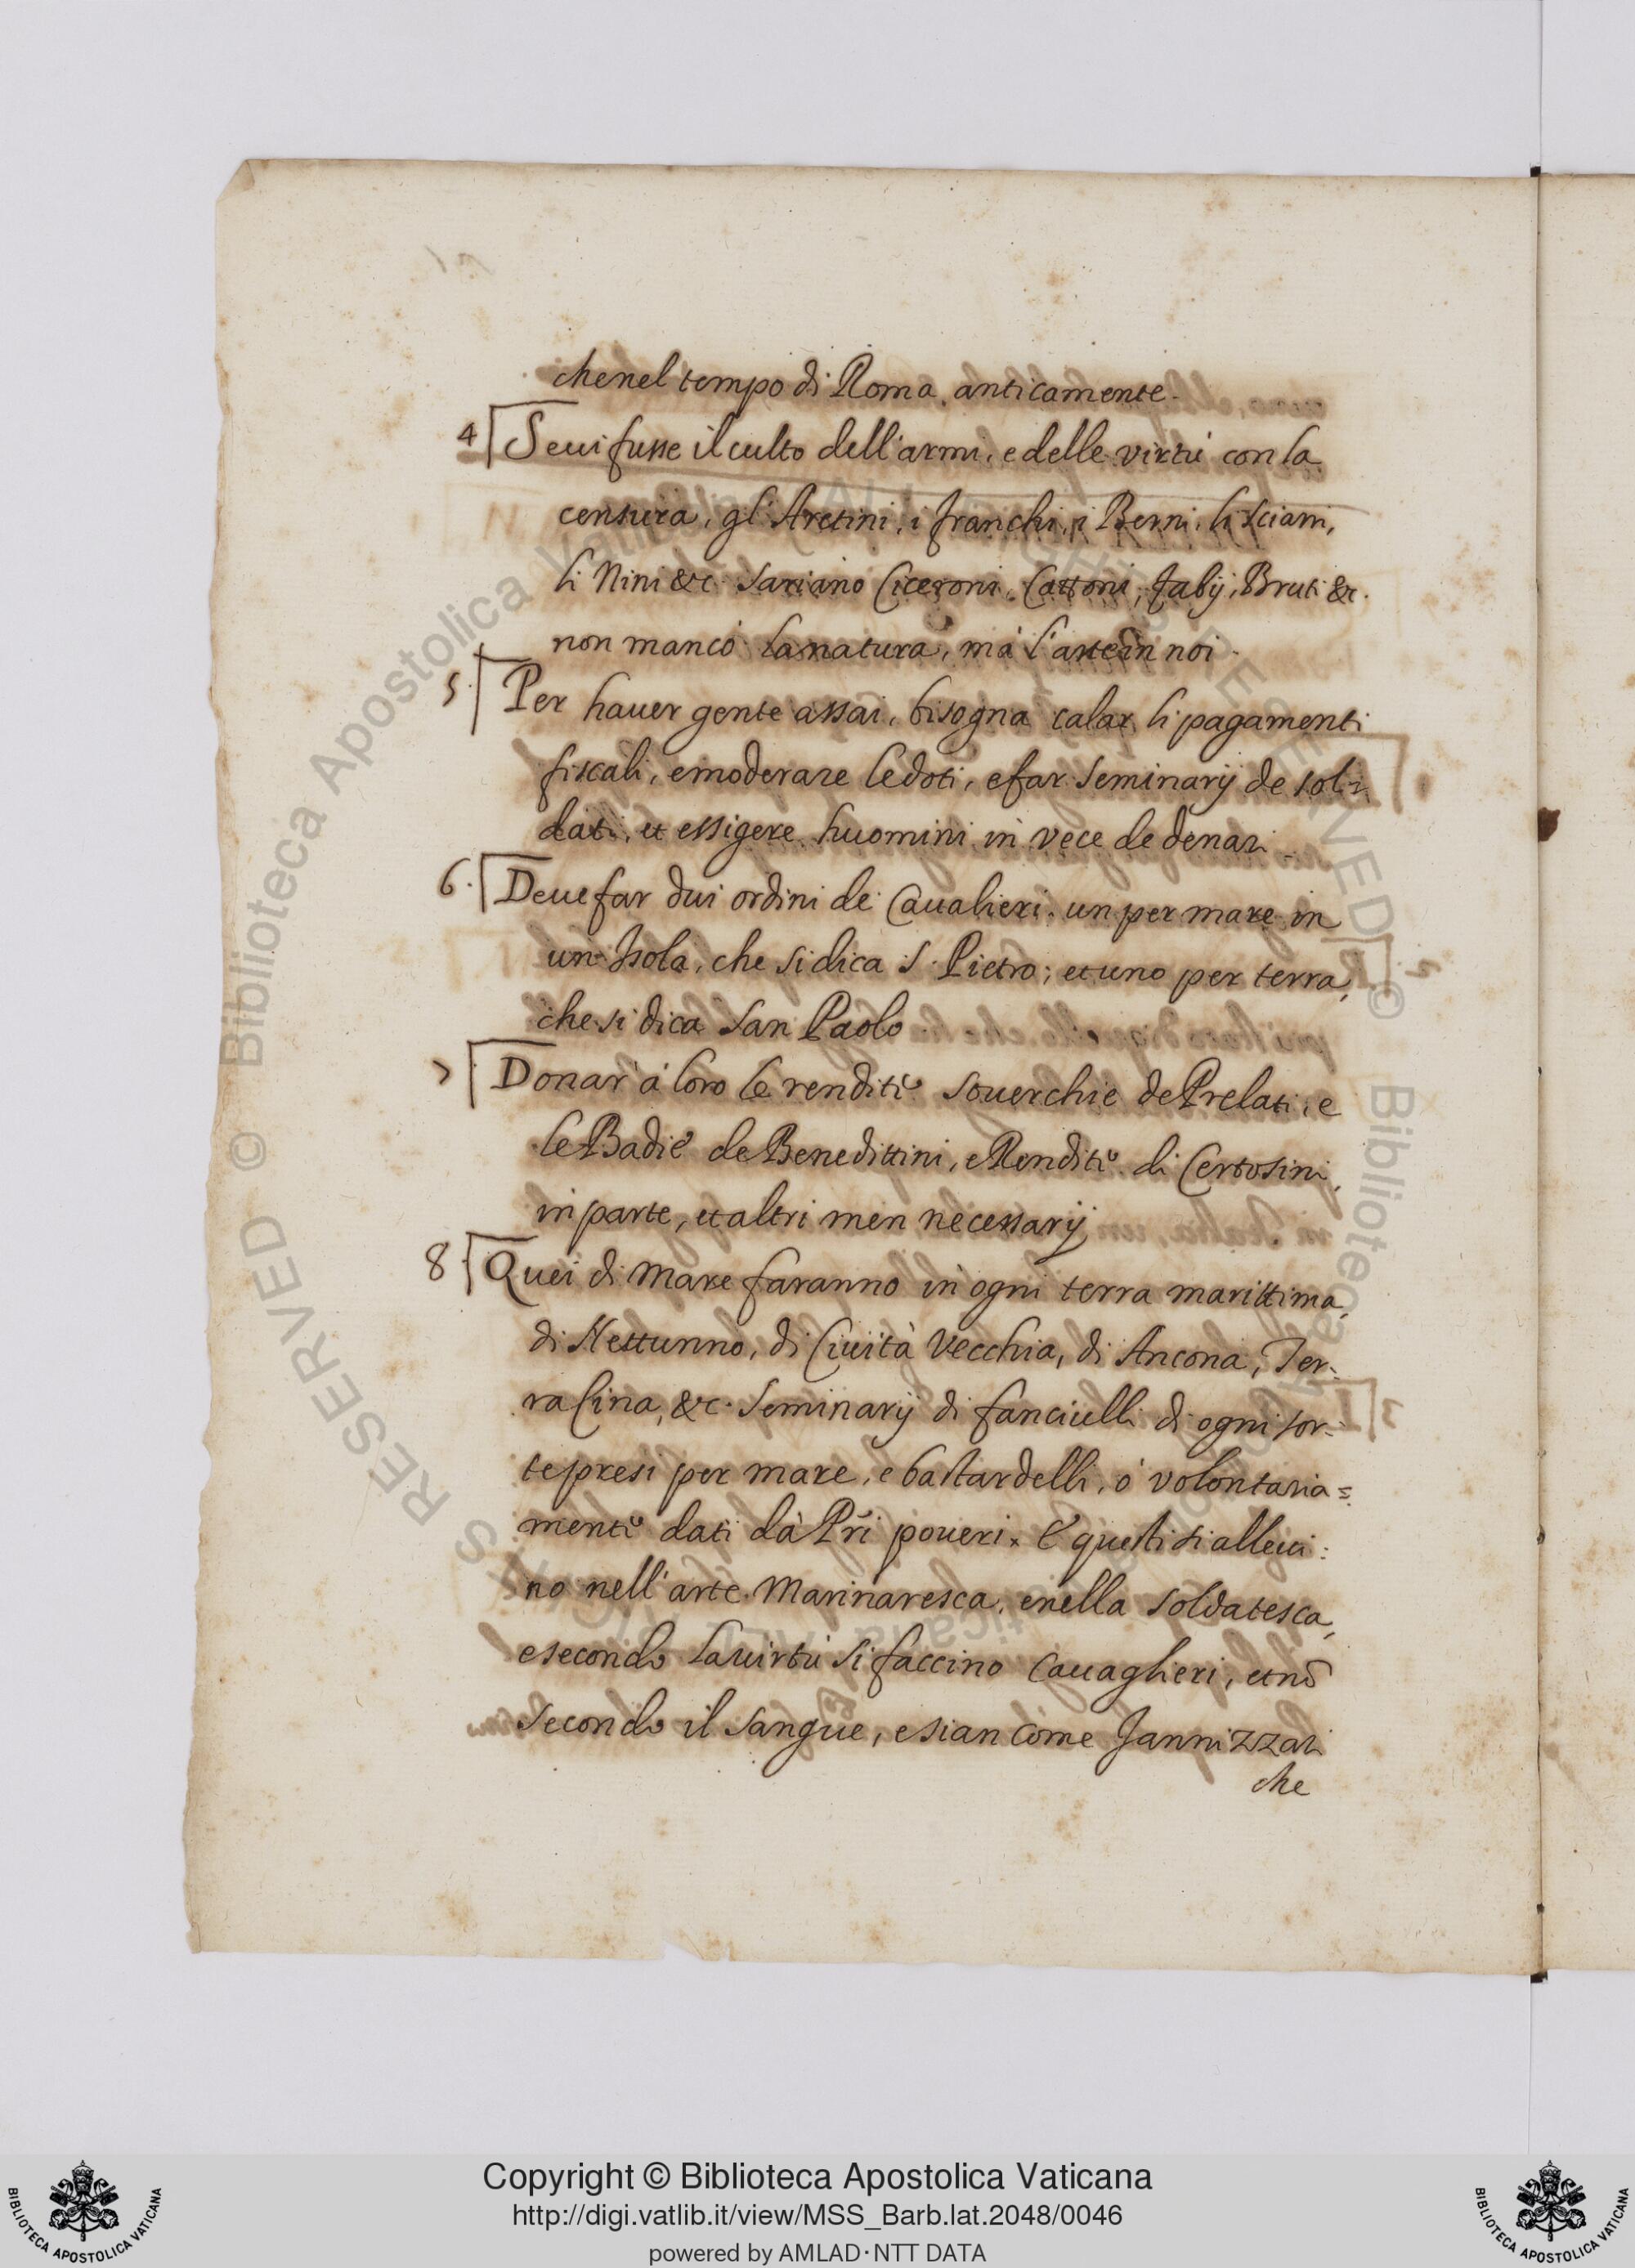 che nel tempo di Roma anticamente.
4 Se ui fusse il culto dell'armi, e delle virtù con la
censura, gl'Aretini, i franchi, i Berni, li Sciarri,
li Nini &c. Sariano Ciceroni, Cattoni, Fabij, Bruti &c.
non mancò la natura, mà l'arte in noi.
5. Per hauer gente assai, bisogna calar li pagamenti
fiscali, e moderare le doti, e far Seminarij de sol=
dati, et essigere huomini in vece de denari
6. Deue far dui ordini de Caualieri. un per mare in
un Isola, che si dica S. Pietro; et uno per terra,
che si dica San Paolo
7 Donar à loro le rendite souerchie de Prelati, e
le Badie de Benedittini, e Rendite di Certosini,
in parte, et altri men necessarij
8. Quei di Mare faranno in ogni terra marittima,
di Nettunno, di Ciuità Vecchia, di Ancona, Ter=
racina, &c. Seminarij di fanciulli di ogni sor=
te presi per mare, e bastardelli, ò volontaria=
mente dati dà Pri poueri. E questi si alleui=
no nell'arte Marinaresca, e nella soldatesca,
e secondo la uirtù si faccino Cauaglieri, et nō
secondo il sangue, e sian come Jannizzari
che
Copyright © Biblioteca Apostolica Vaticana
http://digi.vatlib.it/view/MSS_Barb.lat.2048/0046
powered by AMLAD·NTT DATA
BIBLIOTECA APOSTOLICA VATICANA
BIBLIOTECA APOSTOLICA VATICANA